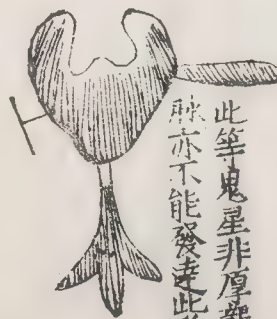 此等鬼星非厚龍
脉亦不能發達此